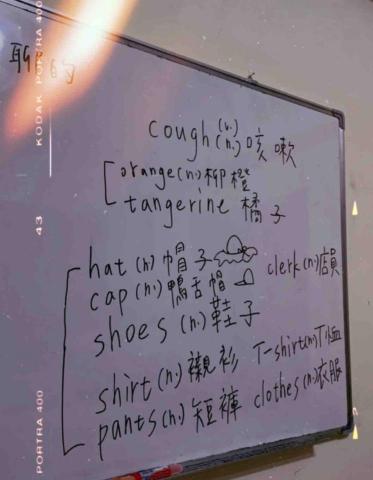 聊 的
KODAK PORTRA 400
43
PORTRA 400
cough (v.)(n.) 咳 嗽
orange(n.) 柳 橙
tangerine 橘 子
hat (n.) 帽 子
cap (n.) 鴨舌帽
clerk (n.) 店員
shoes (n.) 鞋子
shirt (n.) 襯衫
T-shirt(n.) T恤
pants(n.) 短褲
clothes (n.) 衣服